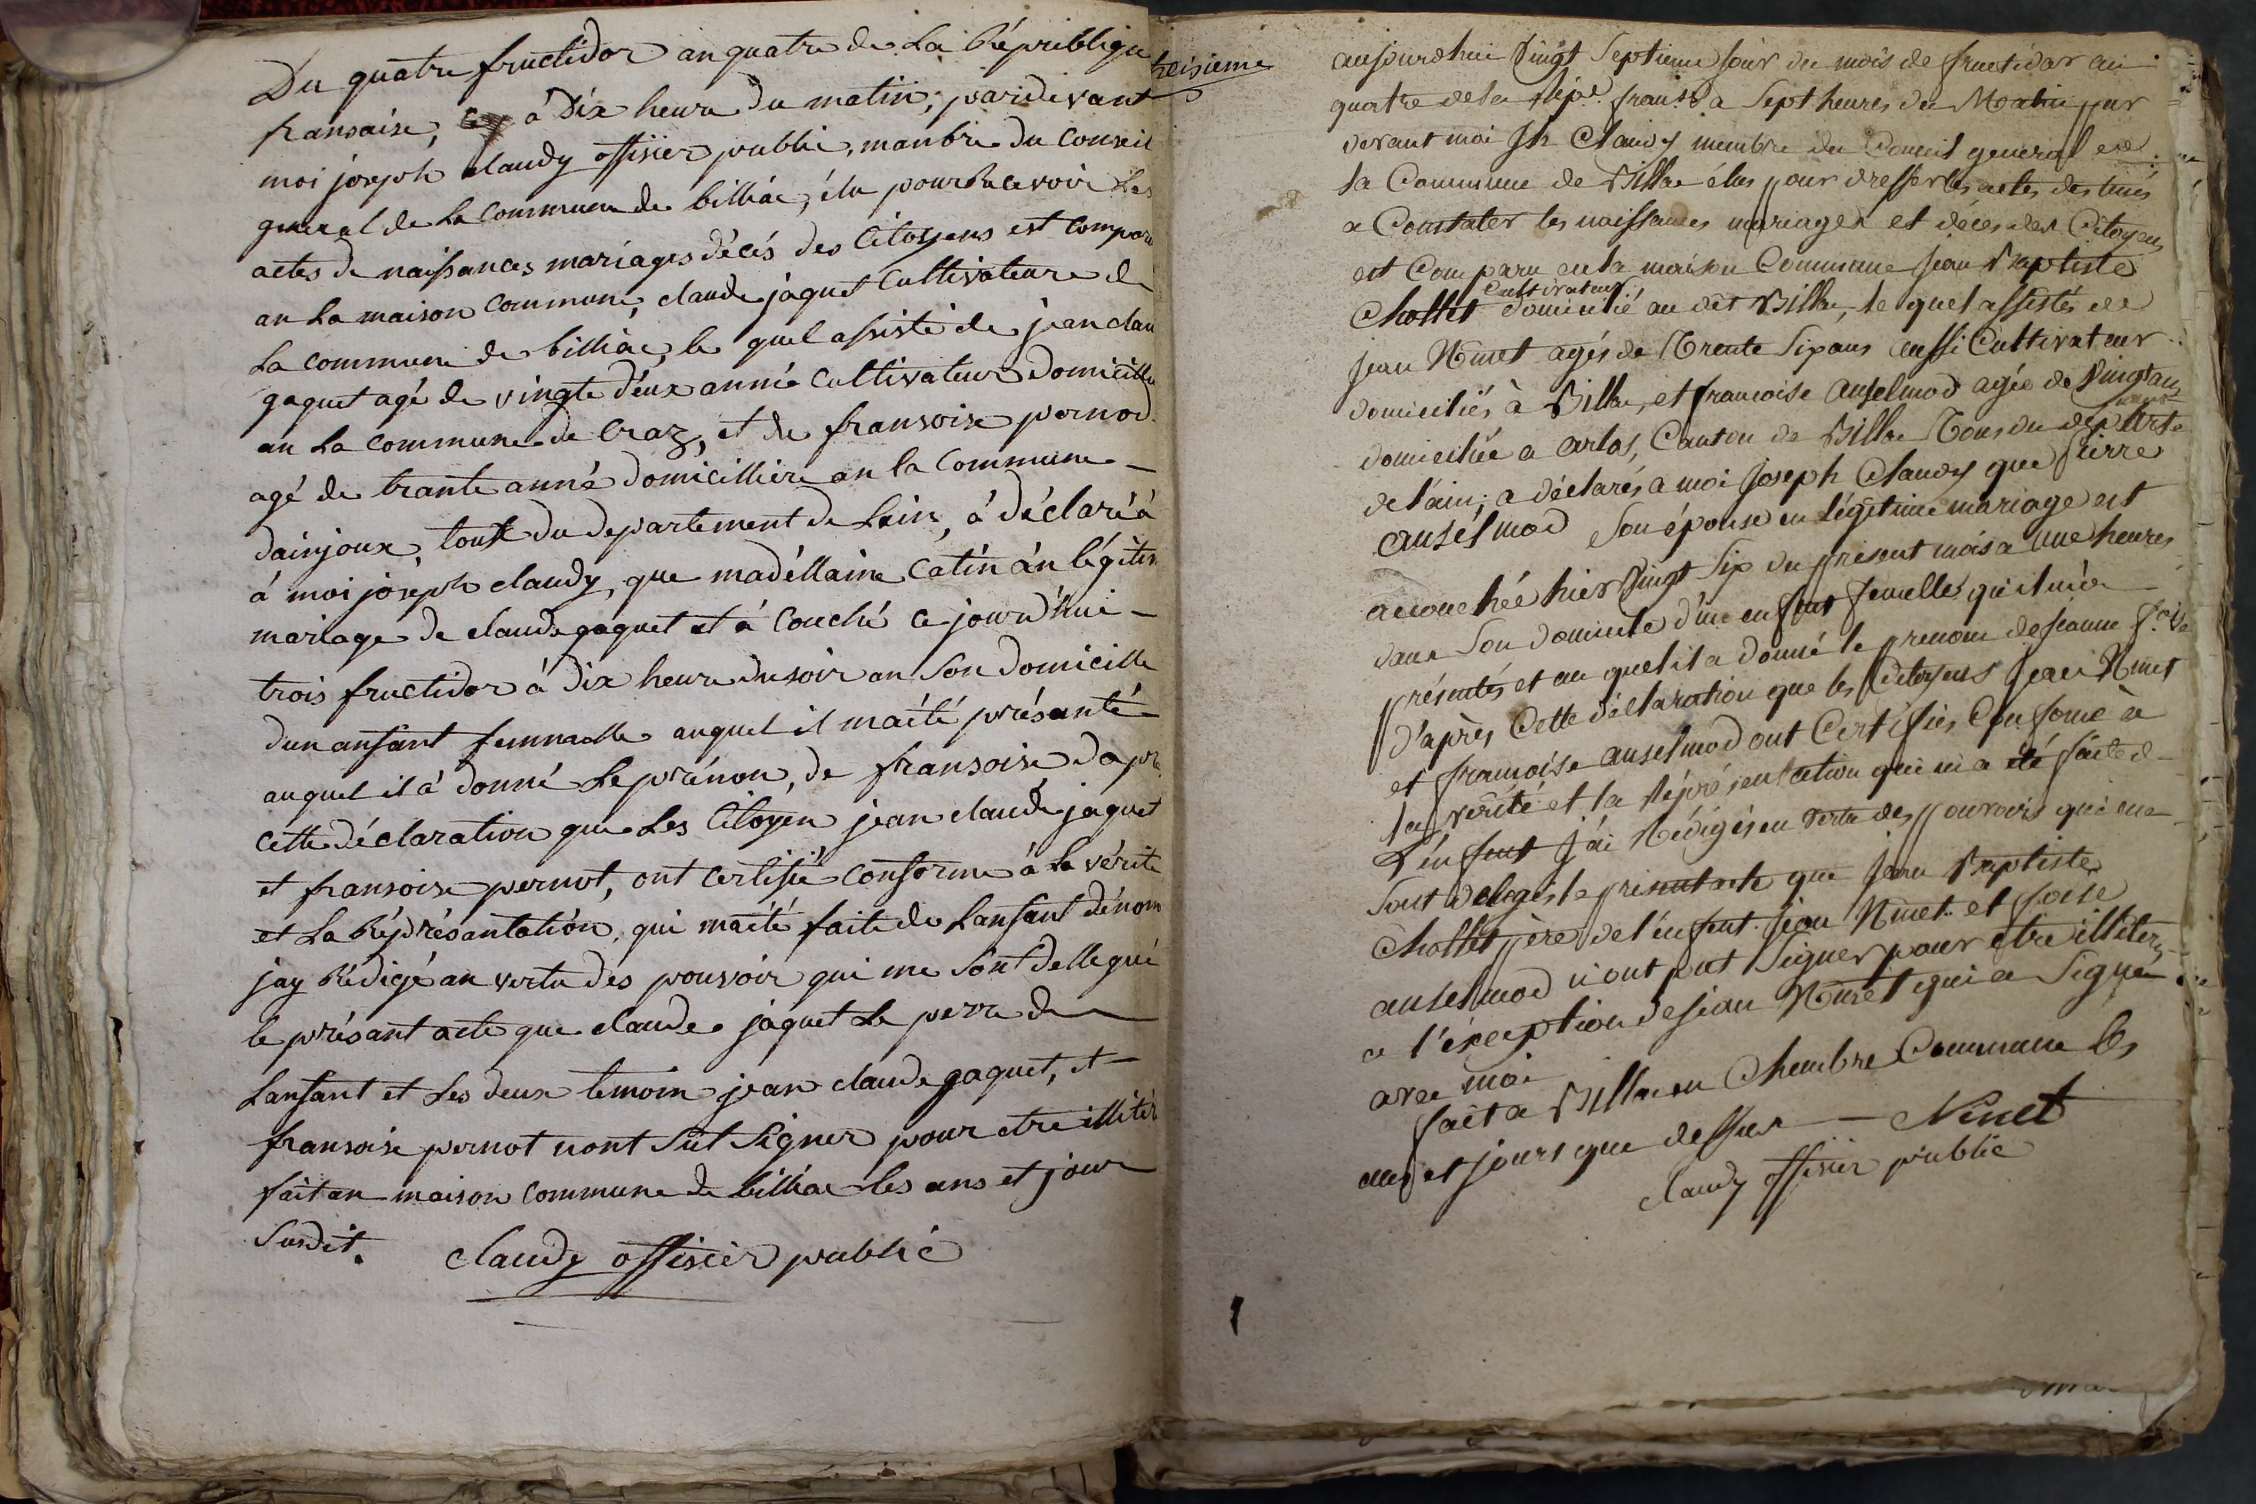 Du quatre fructidor an quatre de la Républlique
fransaise, à dix heure du matin; pardevant
moi joseph claudy offisier public, manbre du Conseil
general de la commune de billiac, élu pour recevoir les
actes de naissances mariages décés des Citoyens est compare
an la maison commune, claude jaquet Cultivateure de
la commune de billiac, le quel assisté de jean clau
gaquet agé de vingte déux anné Cultivateur domicillié
an la commune de Craz, et de fransoise pernod
agé de trante anné domicilliére an la Commune
dainjoux, tout du departement de Lain, à déclaré à
à moi joséph claudy, que madéllaine Catin àn légitim
mariage de claude gaquet et à Couché ce jourd'hui
trois fructidor à dix heure du soir an son domicille
dun anfant femmelle auquel il maété présanté
auquel il à donné le prénon, de fransoise dapr
cette déclaration que les Citoyen jean claude jaquet
et fransoise pernot, ont certifié conforme à la vérite
et la Réprésantation, qui maété faite de Lanfant dénom
jay Rédigé an vertu dés pouvoir qui me sont dellegué
le présant acte que claude jaquet le perre de
Lanfant et les deux temoin jean claude gaquet, et
fransoise pernot nont sut signer pour etre illitér
fait an maison commune de billiac les ans et jour
susdit. claudy offisier public
treisieme
aujourdhui vingt septieme jour du mois de fructidor an
quatre de la Répe. franse a sept heures du Matin par
devant moi Jh Claudy membre du Conseil general de
la Commune de Billiac élus pour dresser les actes destinés
a Constater les naissances mariages et décés des Citoyens
est Comparu en la maison Commune Jean Baptiste
Cultivateur
Chollet domicilié au dit Billiac, le quel assistés de
Jean Ninet agés de Trente six ans aussi Cultivateur
domiciliés à Billiac, et francoise anselmod agée de vingt ans
domiciliée a arlos, Canton de Billiac Tous du departe
ment
de l'ain; a déclarés a moi Joseph Claudy que Pierre
anselmod son épouse en légitime mariage est
acouchée hier vingt six du present mois a une heures
dans son domicile d'un enfant femelle qu'il m'a
présentés et au quel il a donné le prenom de jeanne f.oise
d'après Cette déclaration que les Citoyens Jean Ninet
et francoise anselmod ont Certifiés Conforme à
la vérité et la Réprésentation qui m'a été faite de
L'enfent J'ai Rédigés en vertu des pouvoirs qui me
sont delegés le present acte que Jean Baptiste
Chollet père de l'enfent Jean Ninet et foise
anselmod n'ont put signer pour etre illiterés
a l'exception de jean Ninet qui a Signé
avec moi
fait a Billiac en Chembre Commune les
ans et jours que dessus Ninet
claudy offisier public